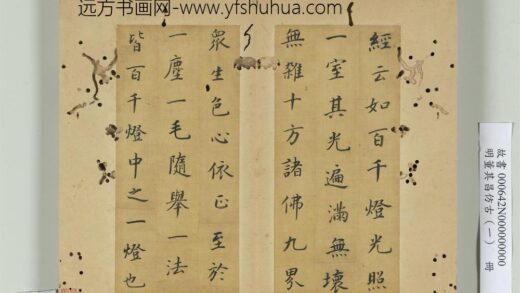 远方书画网-www.yfshuhua.com
經云如百千燈光照
一室其光遍滿無壞
無雜十方諸佛九界
眾生色心依正至於
一塵一毛隨舉一法
皆百千燈中之一燈也
故書 000642N000000000
明董其昌仿古(一) 冊